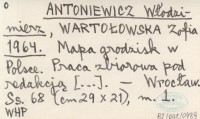 ANTONIEWICZ Włodzi-
mierz, WARTOŁOWSKA Zofia
1964. Mapa grodzisk w
Polsce. Praca zbiorowa pod
redakcją [...]. — Wrocław.
Ss. 68 (cm 29 x 21), m. 1.
WHP